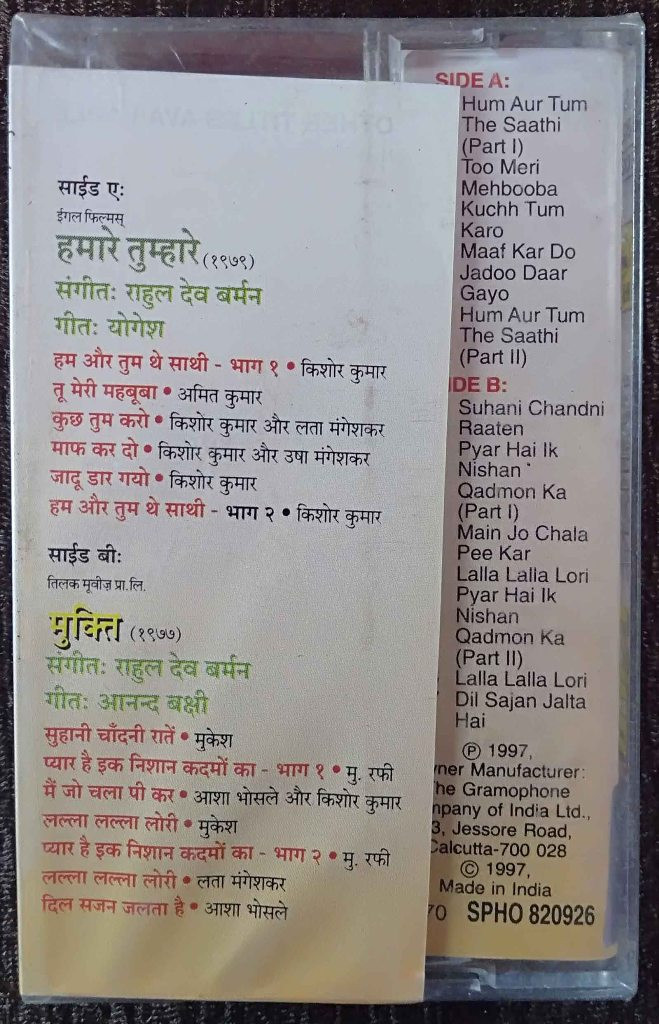 साईड ए:
ईगल फिल्मस्
हमारे तुम्हारे (१९७९)
संगीत: राहुल देव बर्मन
गीत: योगेश
हम और तुम थे साथी - भाग १ • किशोर कुमार
तू मेरी महबूबा • अमित कुमार
कुछ तुम करो • किशोर कुमार और लता मंगेशकर
माफ कर दो • किशोर कुमार और उषा मंगेशकर
जादू डार गयो • किशोर कुमार
हम और तुम थे साथी - भाग २ • किशोर कुमार
साईड बी:
तिलक मूवीज़ प्रा.लि.
मुक्ति (१९७७)
संगीत: राहुल देव बर्मन
गीत: आनन्द बक्षी
सुहानी चाँदनी रातें • मुकेश
प्यार है इक निशान कदमों का - भाग १ • मु. रफी
मैं जो चला पी कर • आशा भोसले और किशोर कुमार
लल्ला लल्ला लोरी • मुकेश
प्यार है इक निशान कदमों का - भाग २ • मु. रफी
लल्ला लल्ला लोरी • लता मंगेशकर
दिल सजन जलता है • आशा भोसले
SIDE A:
Hum Aur Tum
The Saathi
(Part I)
Too Meri
Mehbooba
Kuchh Tum
Karo
Maaf Kar Do
Jadoo Daar
Gayo
Hum Aur Tum
The Saathi
(Part II)
IDE B:
Suhani Chandni
Raaten
Pyar Hai Ik
Nishan
Qadmon Ka
(Part I)
Main Jo Chala
Pee Kar
Lalla Lalla Lori
Pyar Hai Ik
Nishan
Qadmon Ka
(Part II)
Lalla Lalla Lori
Dil Sajan Jalta
Hai
℗ 1997,
ner Manufacturer:
he Gramophone
mpany of India Ltd.,
3, Jessore Road,
alcutta-700 028
© 1997,
Made in India
70 SPHO 820926